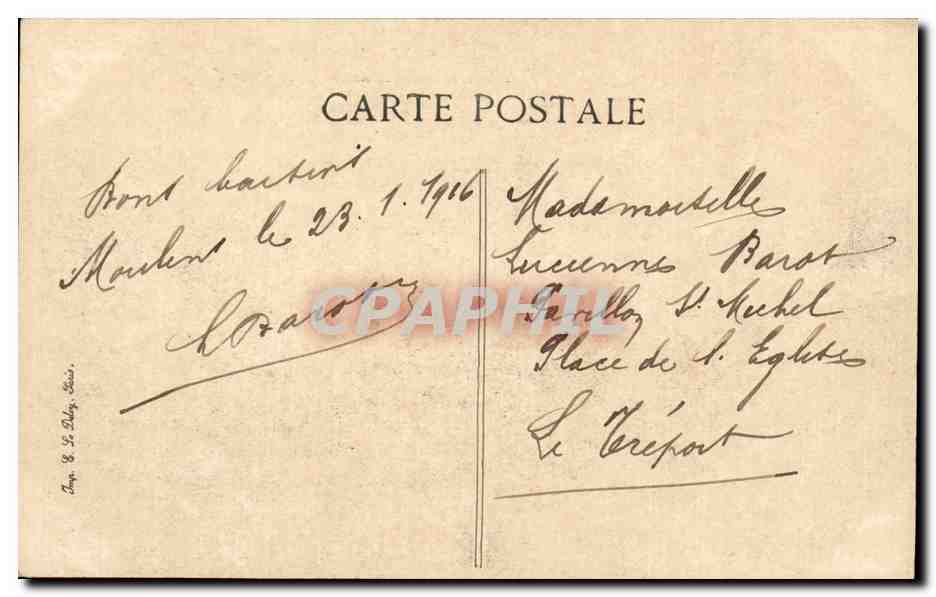 CARTE POSTALE
Moulins le 23.1.1916
Barot
Mademoiselle
Lucienne Barot
Pavillon St Michel
Place de l'Eglise
Le Tréport
Imp. E. Le Deley, Paris.
CPAPHIL